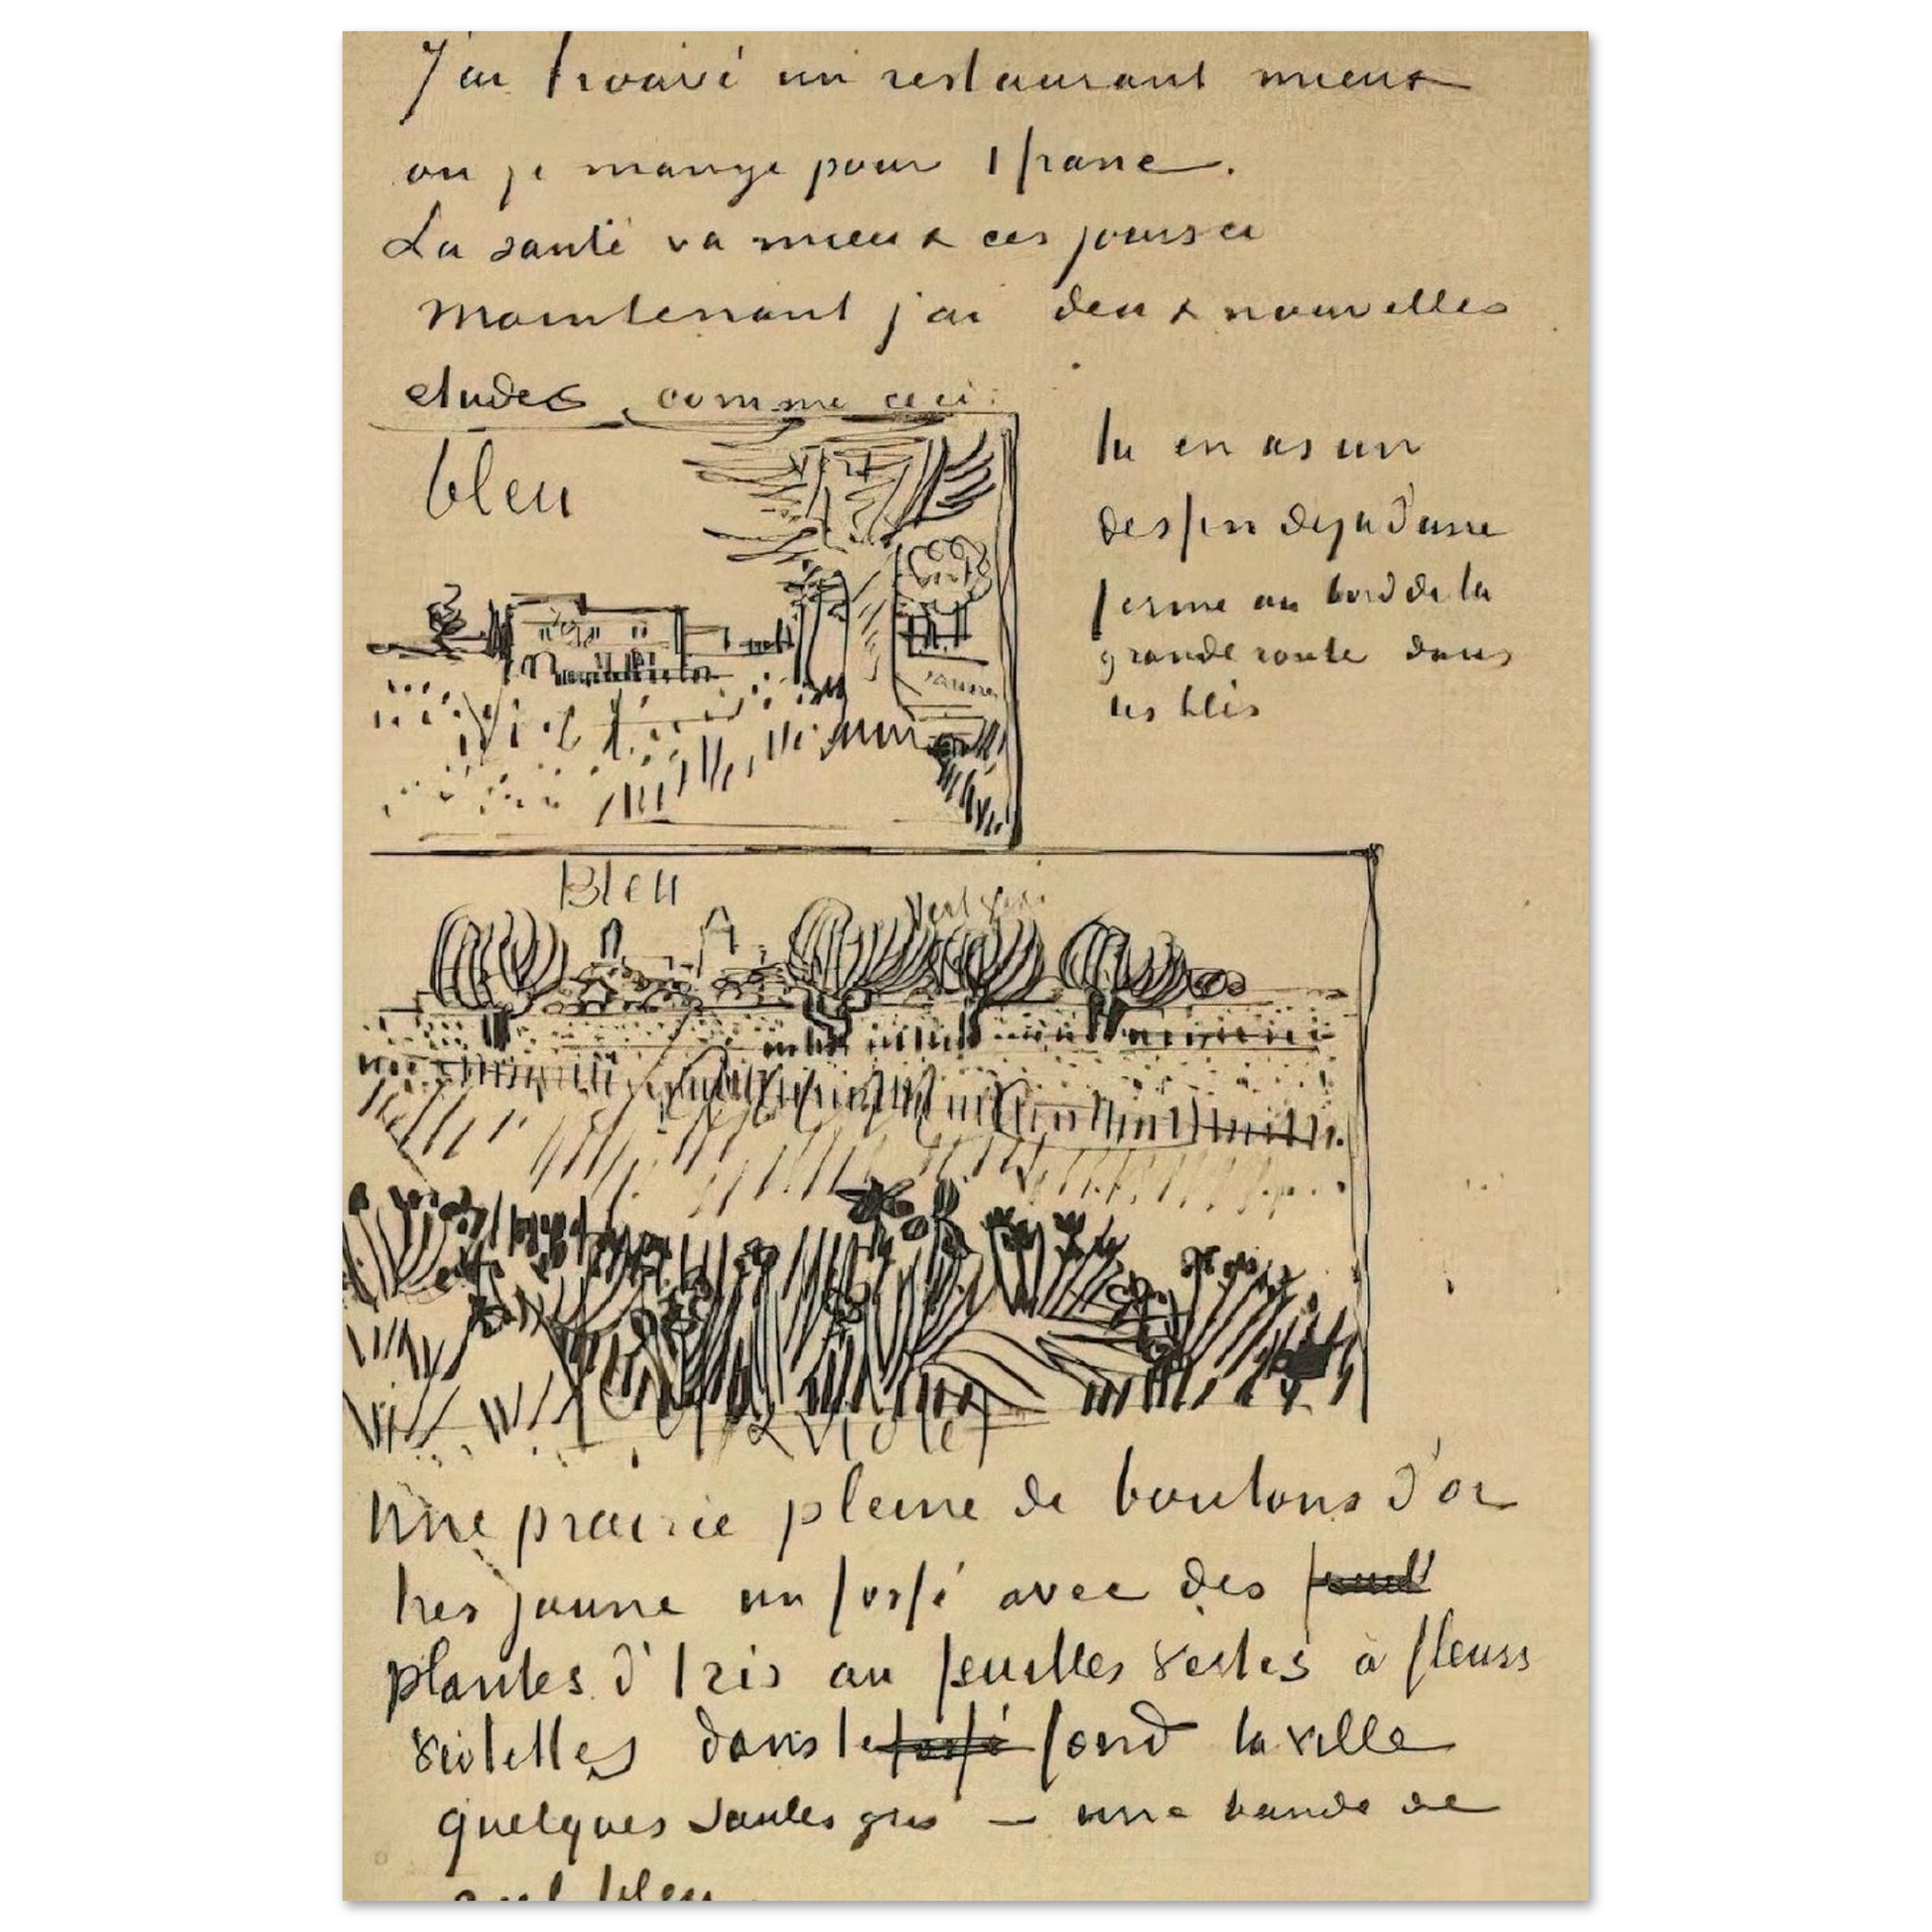 J'ai trouvé un restaurant mieux
ou je mange pour 1 franc.
La santé va mieux ces jours ci
Maintenant j'ai deux nouvelles
etudes, comme ceci:
bleu
vert
jaune
tu en as un
dessin deja d'une
ferme au bord de la
grande route dans
les blés
Bleu
vert gris
violet
Une prairie pleine de boutons d'or
tres jaune un fossé avec des
plantes d'Iris au feuilles vertes à fleurs
violettes dans le fossé fond la ville
quelques saules gris – une bande de
ciel bleu.